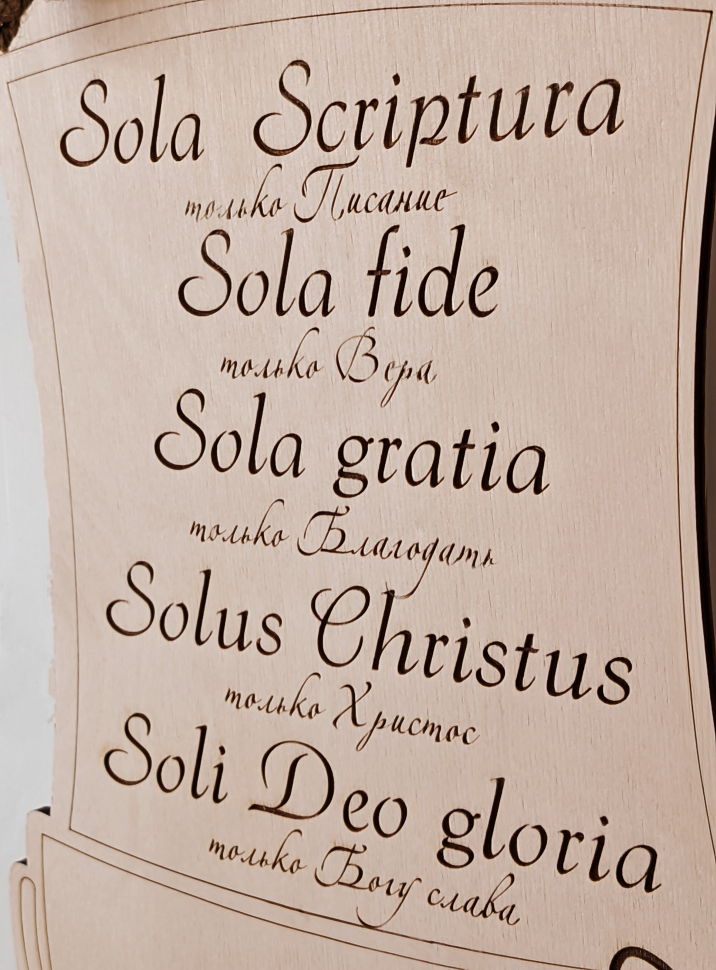 Sola Scriptura
только Писание
Sola fide
только Вера
Sola gratia
только Благодать
Solus Christus
только Христос
Soli Deo gloria
только Богу слава